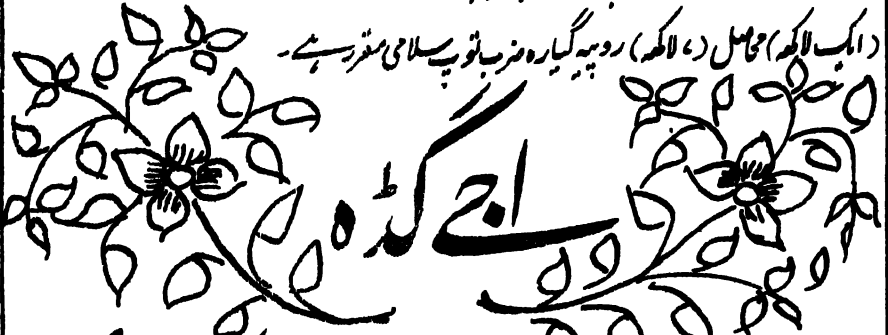 (ایک لاکھ) محاصل (۷ لاکھ) روپیہ گیارہ ضرب توپ سلامی مقرر ہے۔
اجے گڈہ